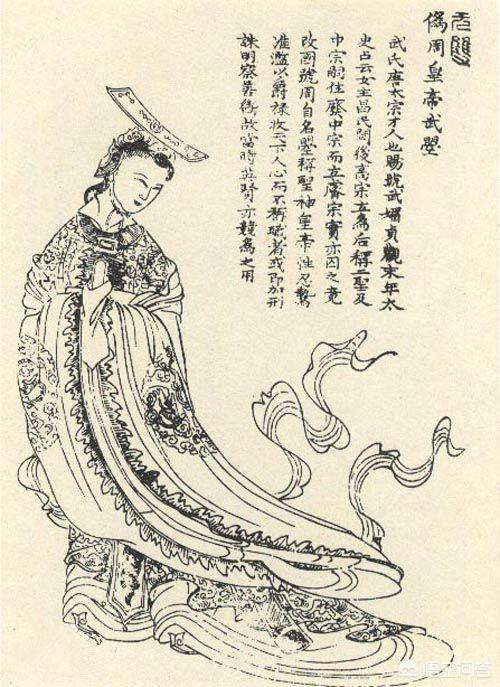 无雙
偽周皇帝武曌
武氏唐太宗才人也賜號武媚貞觀末年太
史占云女主昌民間後高宗立為后稱二聖及
中宗嗣位廢中宗而立睿宗實亦囚之竟
改國號周自名曌稱聖神皇帝性忍鷙
准濫以爵祿收天下人心而不稱職者或即加刑
誅明察善術故當時英賢亦競為之用
悟空问答